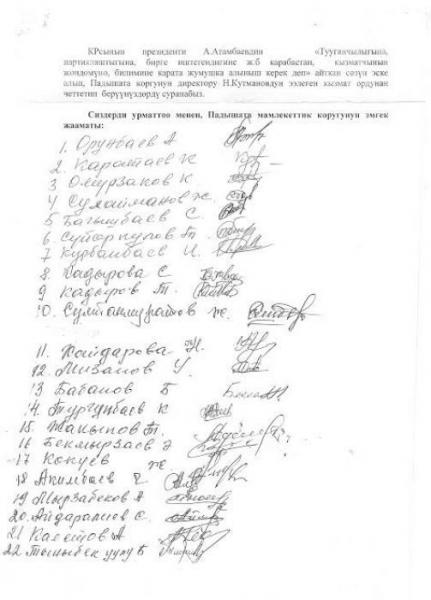 КРсынын президенти А.Атамбаевдин «Туугандчылыгына,
партиялаштыгына, бирге иштегендигине ж.б карабастан, кызматчынын
жөндөмүнө, билимине карата жумушка алыныш керек деп» айткан сөзүн эске
алып, Падышата коргунун директору Н.Кутмановдун ээлеген кызмат ордунан
четтетип берүүнүздөрдү суранабыз.
Сиздерди урматтоо менен, Падышата мамлекеттик коругунун эмгек
жааматы:
1. Орунбаев А
2. Каратаев К
3 Омурзаков К
4 Сулайманов Ж.
5 Багышбаев С.
6 Т.
7 Курбанбаев И.
8 Кадырова С
9 Кадыров Т.
10. Султанмуратов Ж.
11. Жайдарова Н.
12. Мизамов У.
13 Бабанов Б
14. Тургунбаев К
15. Жакыпов Т.
16 Бекмырзаев Э
17 Кокуев Ж
18 Акимбаев
19 Мырзабеков А
20. Айдаралиев С.
21 А
22 Тыныбек уулу Б